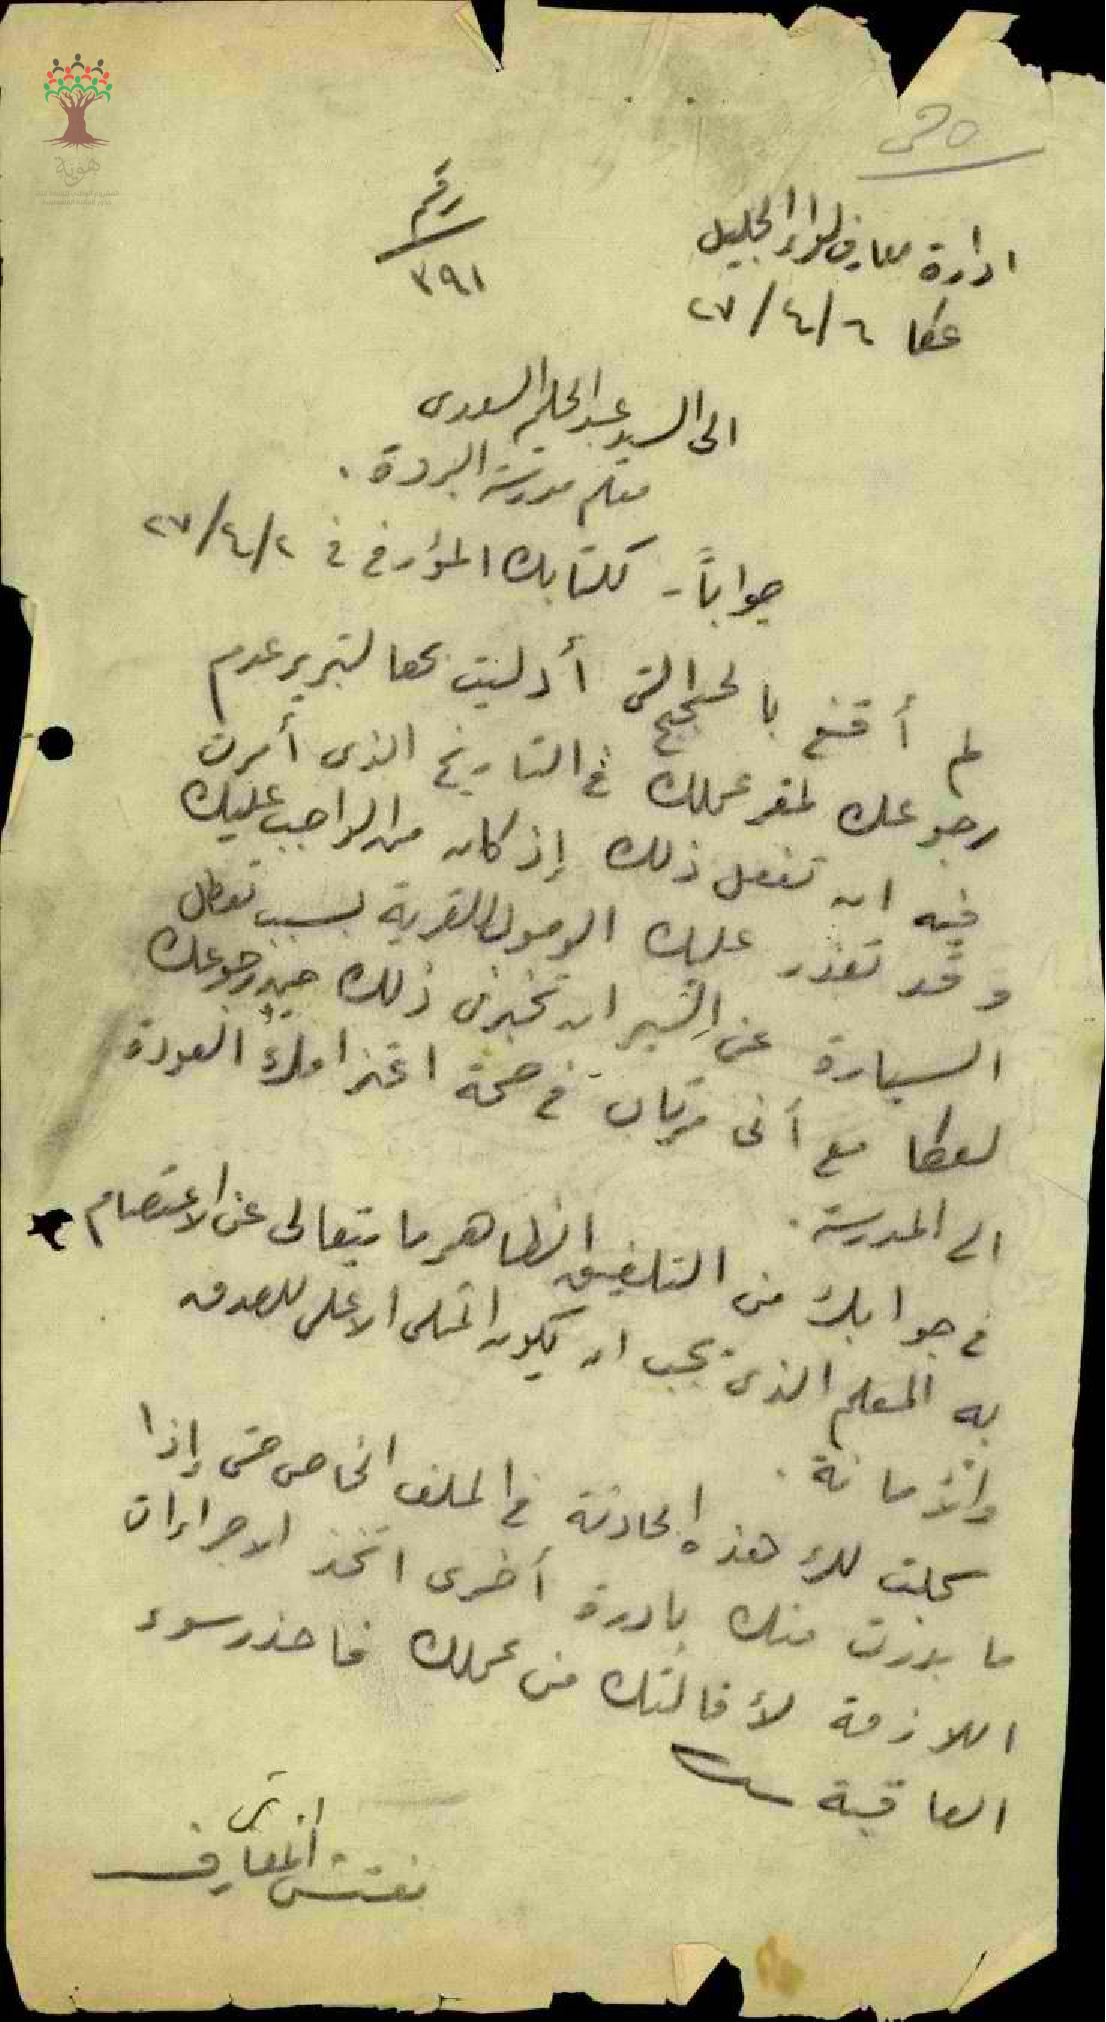 هوية
ادارة معارف لواء الجليل
رقم
٣٩١
عكا ٦/٤/٢٧
الى السيد عبد الحليم السعدى
معلم مدرسة البروة .
جواباً - لكتابك المؤرخ في ٢/٤/٢٧
لم أقنع بالحجج التى أدليت بها لتبرير عدم
رجوعك لمقر عملك في التاريخ الذى أمرت
فيه ان تفعل ذلك إذ كان من الواجب عليك
وقد تعذر عليك الوصول للقرية بسبب تعطل
السيارة عن السير ان تخبرنى ذلك حين رجوعك
لعكا مع أنى مرتاب في صحة اعتزامك العودة
الى المدرسة .
في جوابك من التلفيق الظاهر ما يتعالى عن الاعتصام
به المعلم الذى يجب ان يكون المثل الاعلى للصدق
والأمانة .
سجلت لك هذه الحادثة في الملف الخاص حتى إذا
ما بدرت منك بادرة أخرى اتخذ الاجراءات
اللازمة لأقالتك من عملك فاحذر سوء
العاقبة
مفتش المعارف